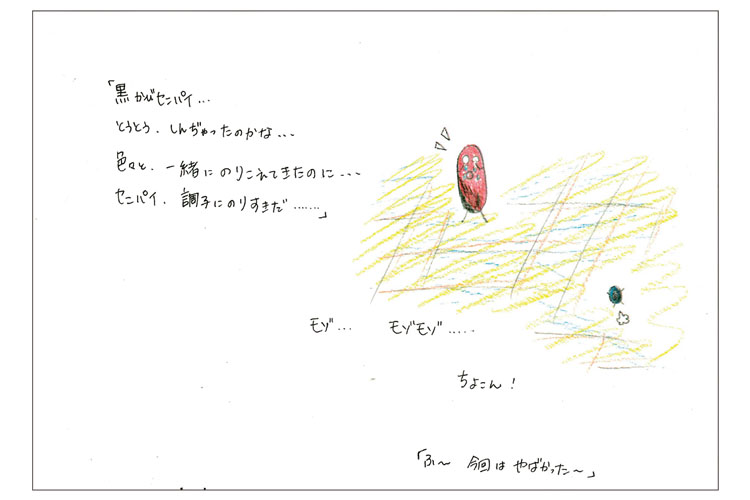 「黒かびセンパイ...
とうとう、しんぢゃったのかな...
色々と、一緒にのりこえてきたのに...
センパイ、調子にのりすきだ......」
モゾ... モゾモゾ.....
ちょこん!
「ふ〜 今回は やばかった〜」